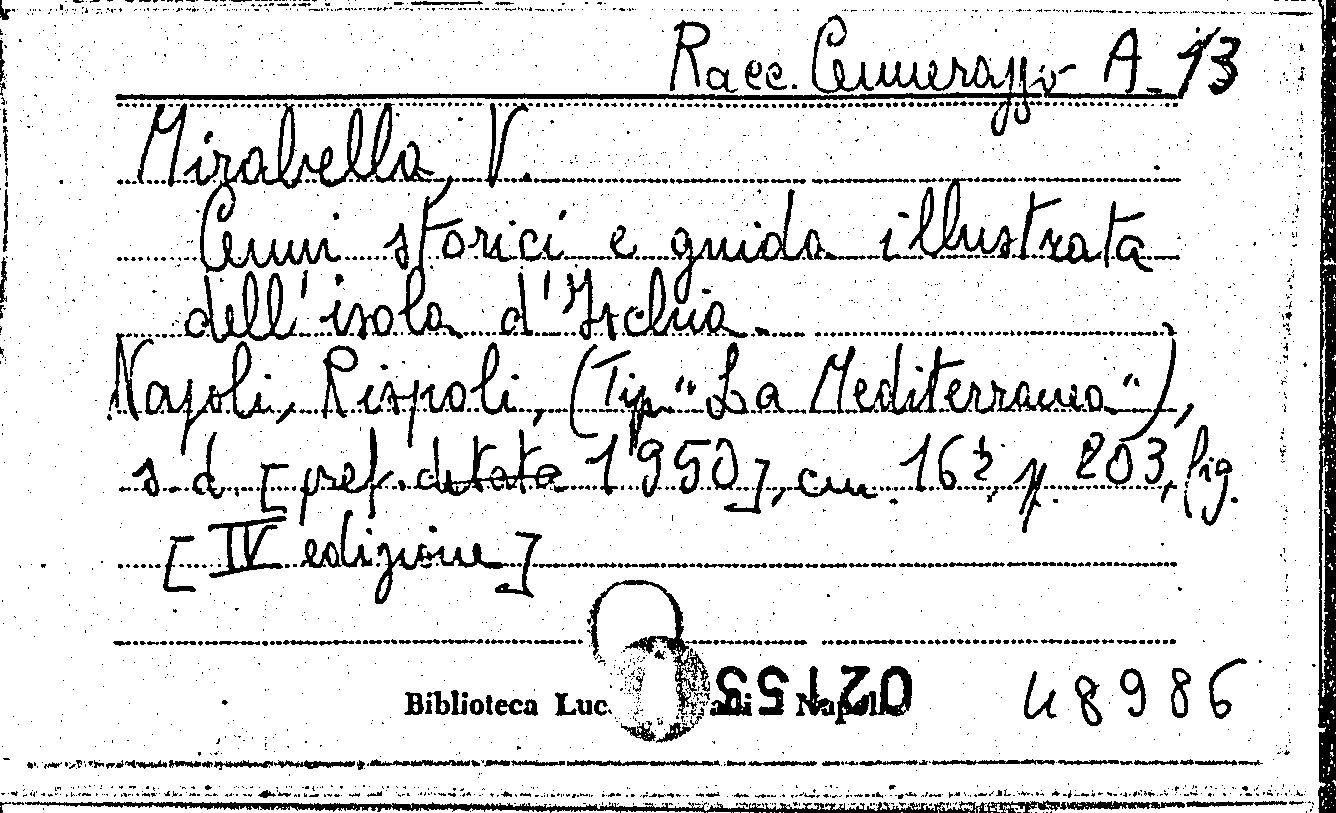 Racc. Cennerazzo A-13
Mirabella, V.
Cenni storici e guida illustrata
dell'isola d'Ischia.
Napoli, Rispoli, (Tip. "La Mediterranea"),
s.d. [pref. datata 1950], cm. 16², p. 203, fig.
[IV edizione]
Biblioteca Napoli
02153
48986